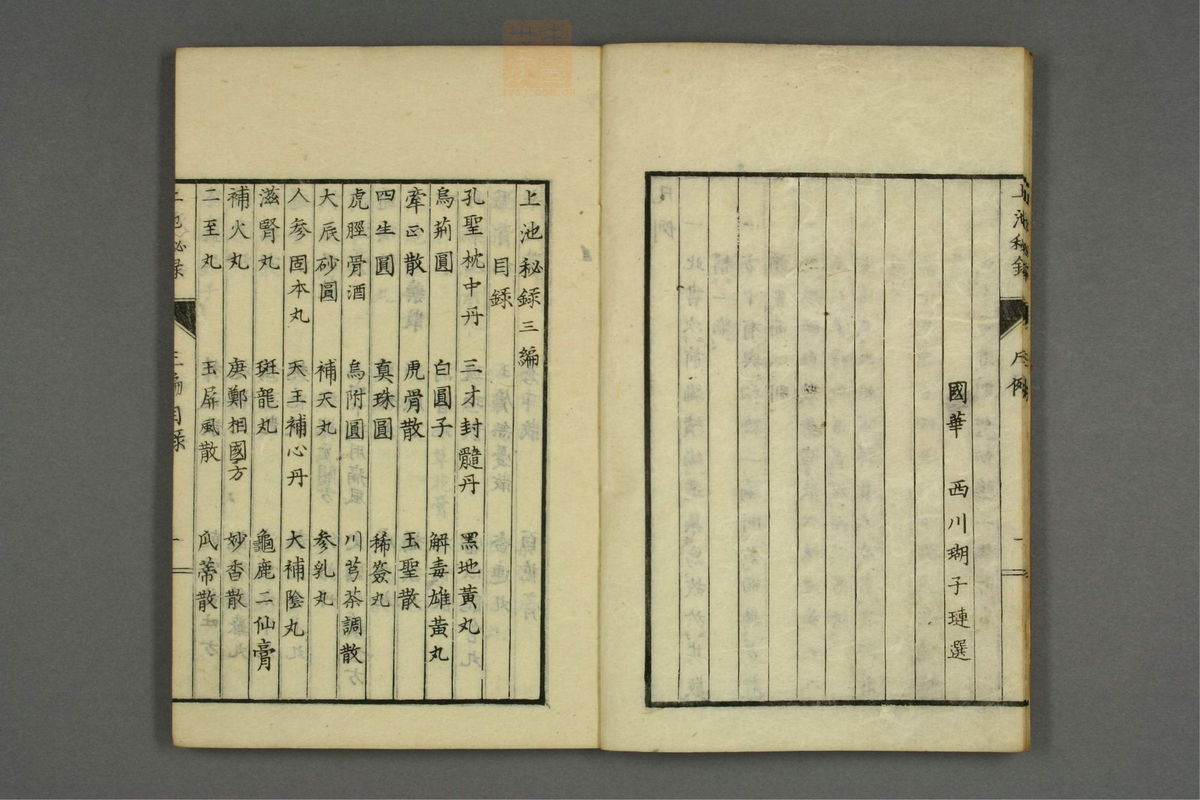 國華 西川瑚子璉選
上池秘錄 凡例 一
上池秘録三編
目録
孔聖枕中丹 三才封髓丹 黑地黃丸
烏荊圓 白圓子 解毒雄黃丸
牽正散 虎骨散 玉聖散
四生圓 真珠圓 稀簽丸
虎脛骨酒 烏附圓 川芎茶調散
大辰砂圓 補天丸 參乳丸
人參固本丸 天王補心丹 大補陰丸
滋腎丸 斑龍丸 龜鹿二仙膏
補火丸 唐鄭相國方 妙香散
二至丸 玉屏風散 瓜蒂散
上池秘录 三編目录 一